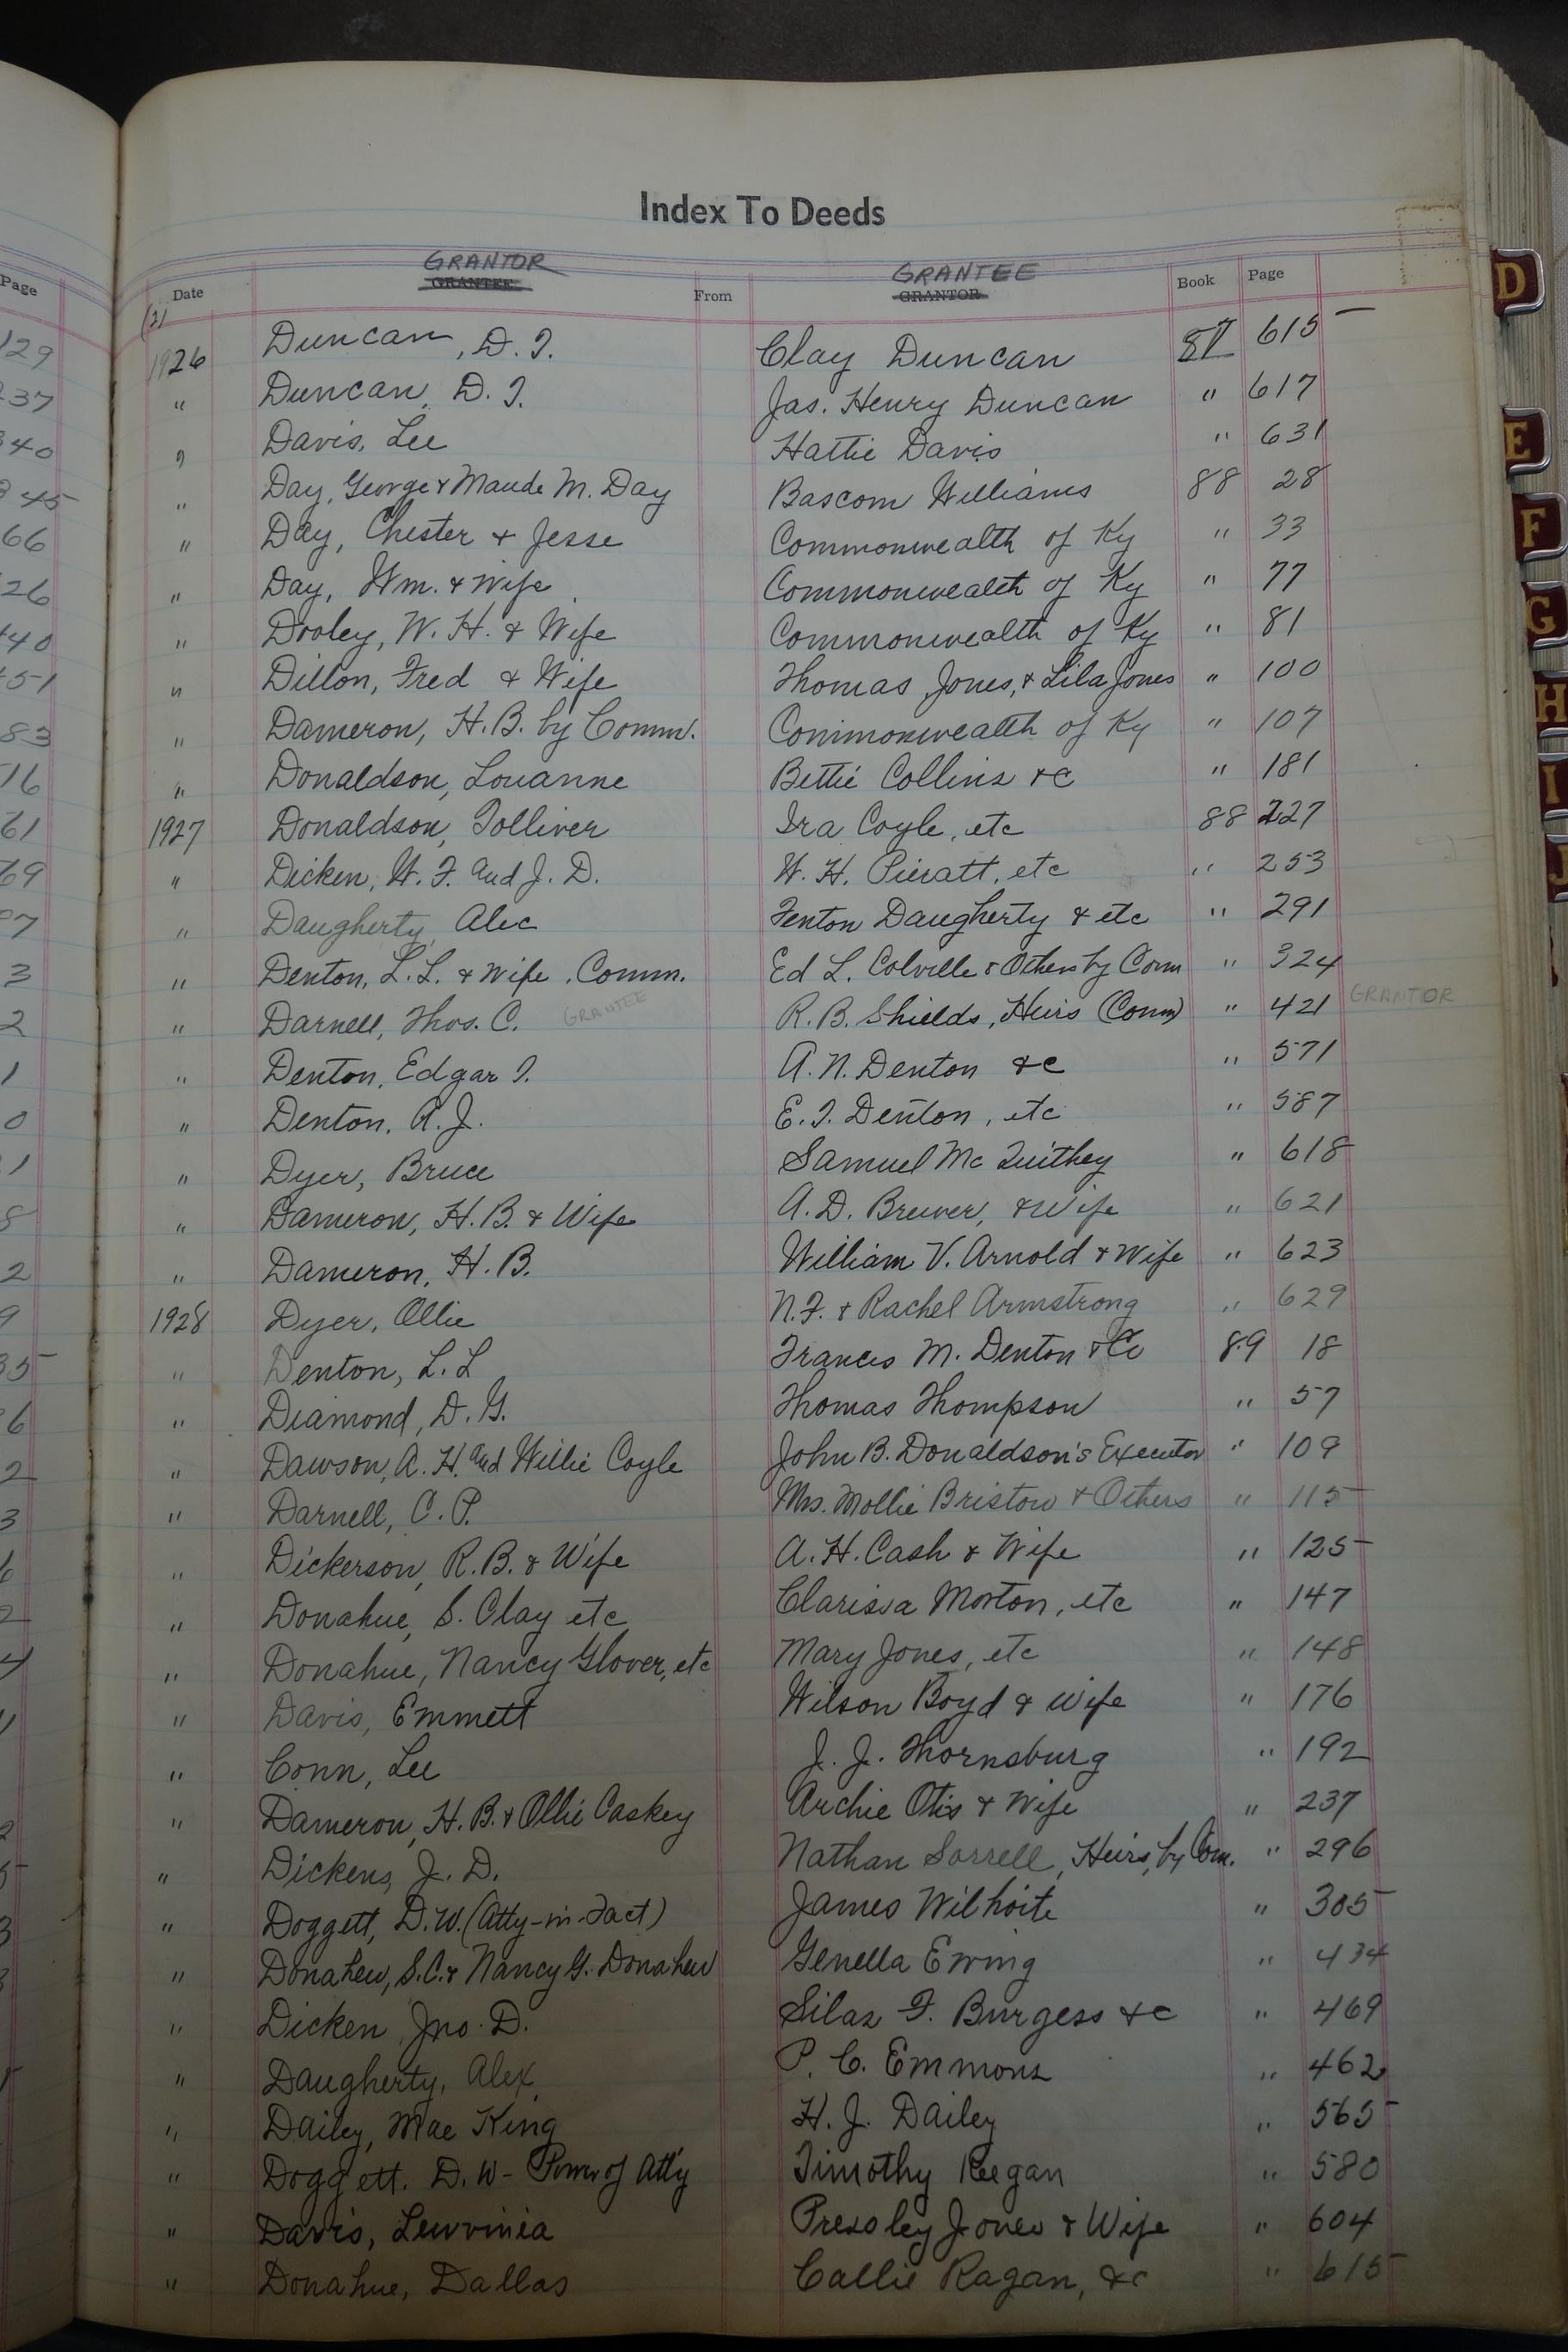 Index To Deeds
GRANTOR GRANTEE
Page Date GRANTEE From GRANTOR Book Page
(2)
1926 Duncan, D. T. Clay Duncan 87 615
" Duncan, D. T. Jas. Henry Duncan " 617
" Davis, Lee Hattie Davis " 631
" Day, George & Maude M. Day Bascom Williams 88 28
" Day, Chester & Jesse Commonwealth of Ky " 33
" Day, Wm. & Wife Commonwealth of Ky " 77
" Dooley, W. H. & Wife Commonwealth of Ky " 81
" Dillon, Fred & Wife Thomas Jones, & Lila Jones " 100
" Dameron, H. B. by Comm. Commonwealth of Ky " 107
" Donaldson, Louanne Bettie Collins &c " 181
1927 Donaldson, Tolliver Ira Coyle, etc 88 227
" Dicken, W. F. and J. D. W. H. Pieratt, etc " 253
" Daugherty, Alec Fenton Daugherty & etc " 291
" Denton, L. L. & Wife, Comm. Ed L. Colville & Others by Com " 324
" Darnell, Thos. C. GRANTEE R. B. Shields, Heirs (Com) " 421 GRANTOR
" Denton, Edgar T. A. N. Denton &c " 571
" Denton, A. J. E. T. Denton, etc " 587
" Dyer, Bruce Samuel Mc Quithey " 618
" Dameron, H. B. & Wife A. D. Brewer, & Wife " 621
" Dameron, H. B. William V. Arnold & Wife " 623
1928 Dyer, Ollie N. F. & Rachel Armstrong " 629
" Denton, L. L Frances M. Denton &c 89 18
" Diamond, D. G. Thomas Thompson " 57
" Dawson, A. H. and Willie Coyle John B. Donaldson's Executor " 109
" Darnell, C. P. Mrs. Mollie Bristow & Others " 115
" Dickerson, R. B. & Wife A. H. Cash & Wife " 125
" Donahue, S. Clay etc Clarissa Morton, etc " 147
" Donahue, Nancy Glover, etc Mary Jones, etc " 148
" Davis, Emmett Wilson Boyd & Wife " 176
" Conn, Lee J. J. Thornsburg " 192
" Dameron, H. B. & Ollie Caskey Archie Otis & Wife " 237
" Dickens, J. D. Nathan Sorrell, Heirs, by Com. " 296
" Doggett, D. W. (Atty-in-Fact) James Wilhoite " 305
" Donahew, S. C. & Nancy G. Donahew Genella Ewing " 434
" Dicken, Jno. D. Silas F. Burgess &c " 469
" Daugherty, Alex P. C. Emmons " 462
" Dailey, Mae King H. J. Dailey " 565
" Doggett. D. W - Power of Atty Timothy Reegan " 580
" Davis, Lewvinia Pressley Jones & Wife " 604
" Donahue, Dallas Callie Ragan, &c " 615
D
E
F
G
H
I
J